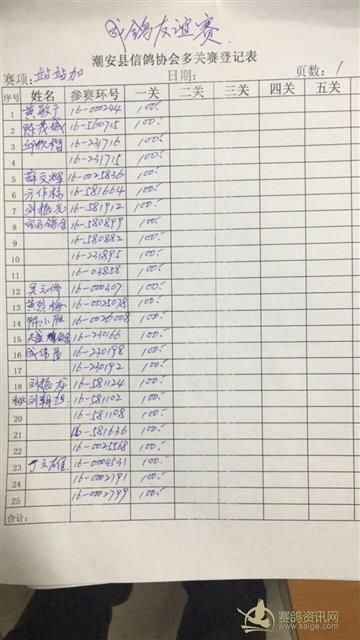 成鸽友谊赛
潮安县信鸽协会多关赛登记表
赛项: 站站加 日期: 页数: 1
序号 姓名 参赛环号 一关 二关 三关 四关 五关
1 黄敬宁 16-000244 100.-
2 陈茂城 16-560715 100.-
3 16-231716 100.-
4 16-231715 100.-
5 薛文辉 16-0025836 100.-
6 方作栋 16-581664 100.-
7 刘振光 16-581912 100.-
8 16-580899 100.-
9 16-580882 100.-
10 16-231895 100.-
11 16-03858 100.-
12 16-000307 100.-
13 16-0025078 100.-
14 陈小胜 16-0026008 100.-
15 16-230166 100.-
16 16-230198 100.-
17 16-230192 100.-
18 刘振龙 16-581124 100.-
16-581102 100.-
20 16-581108 100.-
21 16-581636 100.-
22 16-0025568 100.-
23 丁文雄 16-0004531 100.-
24 16-0002791 100.-
25 16-0002799 100.-
合计:
赛鸽资讯网
www.saige.com